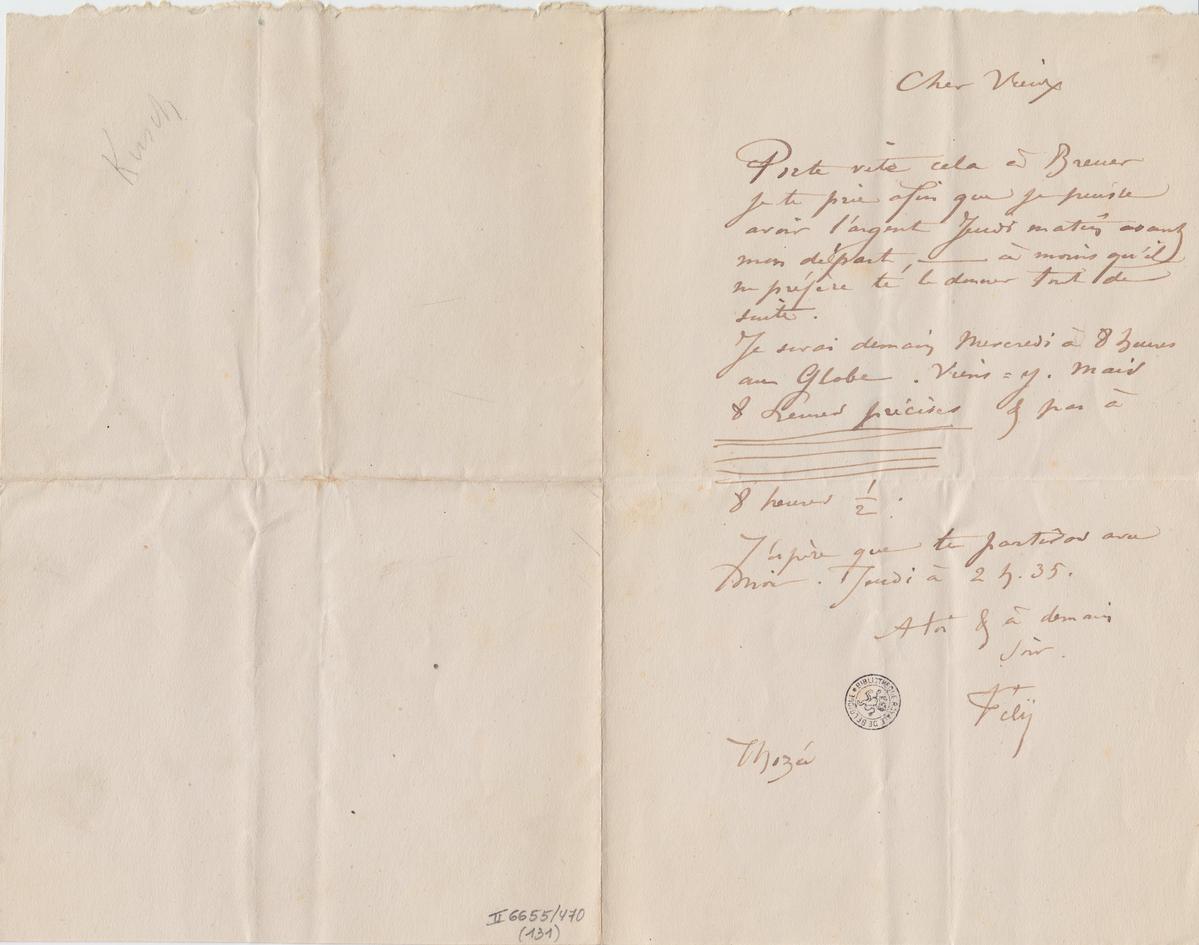 Kirsch
Cher Vieux
Porte vite cela à Breuer
je te prie afin que je puisse
avoir l'argent Jeudi matin avant
mon départ, — à moins qu'il
ne préfère te le donner tout de
suite.
Je serai demain Mercredi à 8 heures
au Globe. Viens=y. Mais
8 heures précises & pas à
8 heures 1/2.
J'espère que tu partiras avec
moi. Jeudi à 2 h. 35.
A toi & à demain
soir.
Fély
BIBLIOTHEQUE ROYALE DE BELGIQUE
Thozée
II 6655/470
(131)